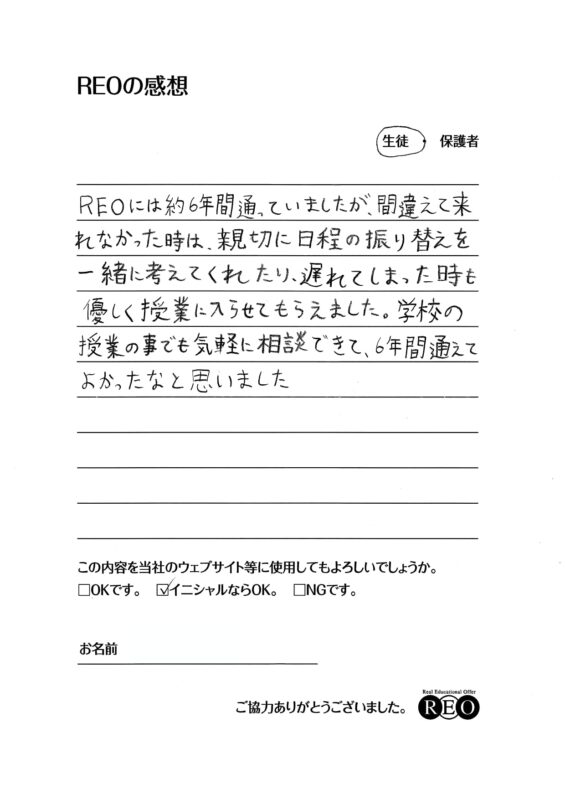 REOの感想
生徒・保護者
REOには約6年間通っていましたが、間違えて来
れなかった時は、親切に日程の振り替えを
一緒に考えてくれたり、遅れてしまった時も
優しく授業に入らせてもらえました。学校の
授業の事でも気軽に相談できて、6年間通えて
よかったなと思いました
この内容を当社のウェブサイト等に使用してもよろしいでしょうか。
□OKです。 ☑イニシャルならOK。 □NGです。
お名前
Real Educational Offer
ご協力ありがとうございました。 REO